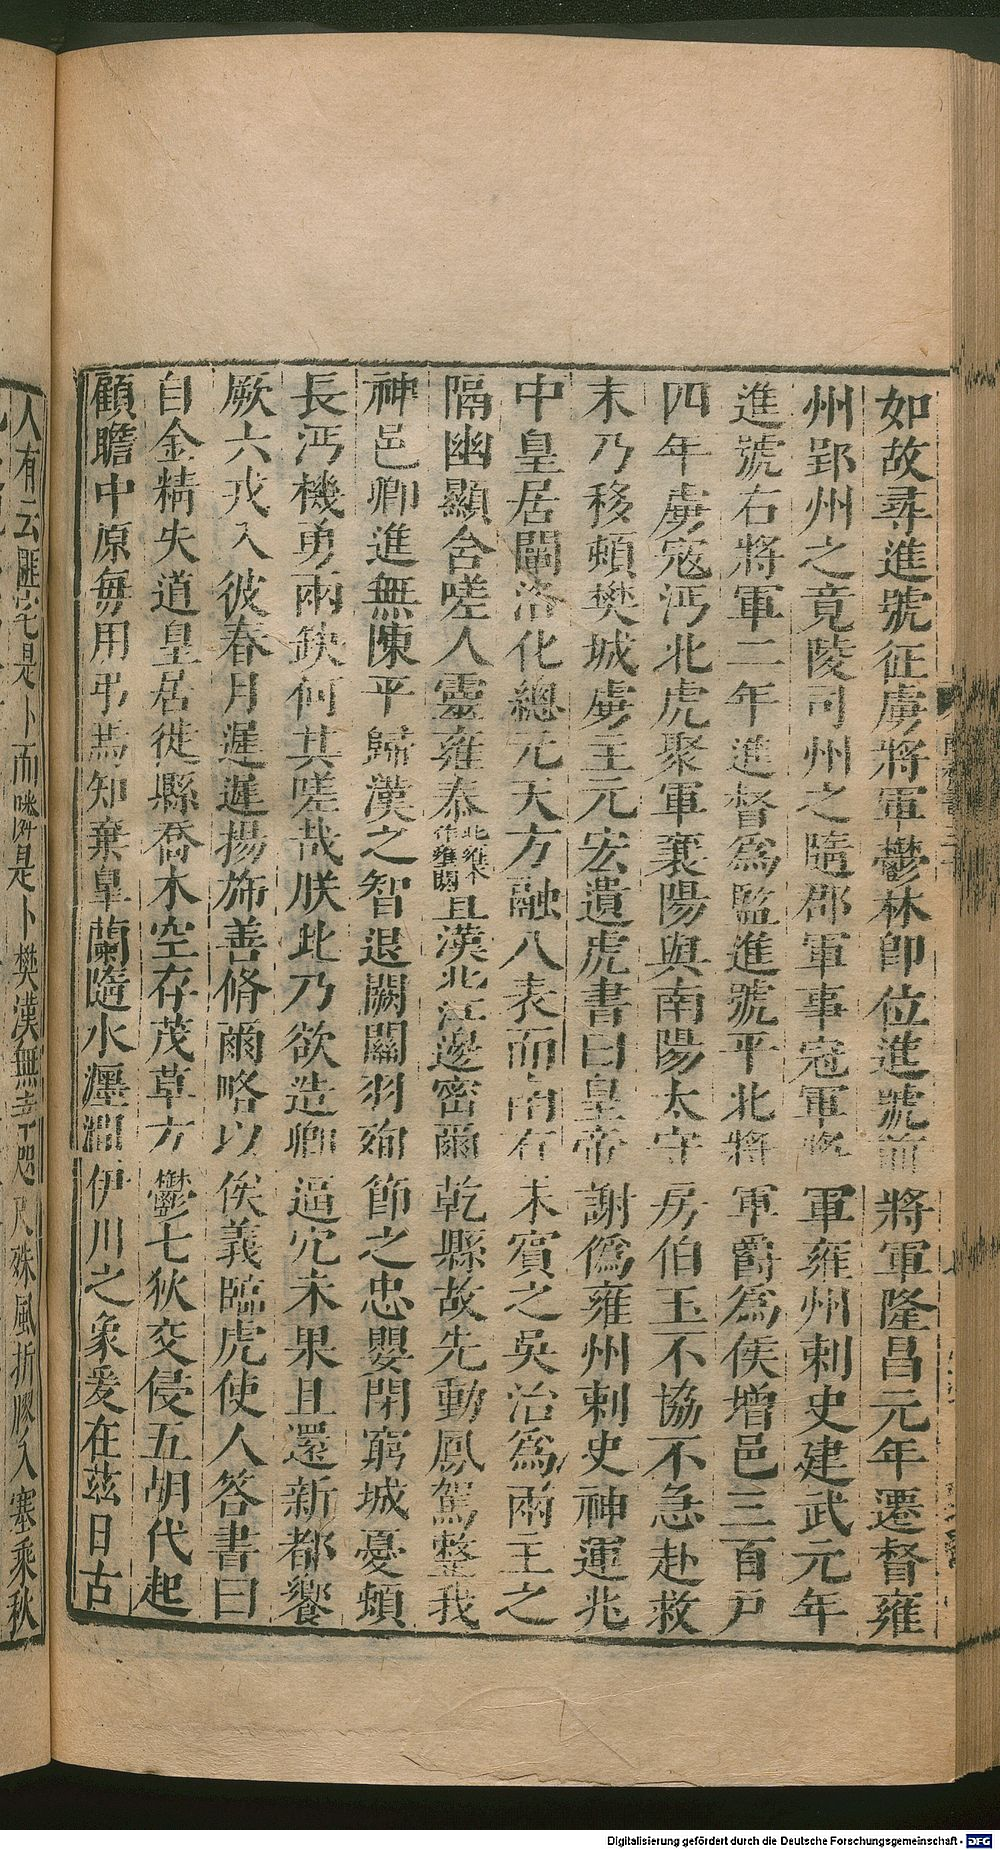 如故尋進號征虜將軍鬱林即位進號前將軍隆昌元年遷督雍
州郢州之竟陵司州之隨郡軍事冠軍將軍雍州刺史建武元年
進號右將軍二年進督爲監進號平北將軍爵爲侯增邑三百戶
四年虜寇沔北虎聚軍襄陽與南陽太守房伯玉不協不急赴救
末乃移頓樊城虜主元宏遺虎書曰皇帝謝僞雍州刺史神運兆
中皇居闡洛化總元天方融八表而南有未賓之吳治爲兩主之
隔幽顯含嗟人靈雍泰且漢北江邊密爾乾縣故先動鳳駕整我
神邑卿進無陳平歸漢之智退闕關羽殉節之忠嬰閉窮城憂頓
長沔機勇兩缺何其嗟哉朕此乃欲造卿逼冗未果且還新都饗
厥六戎入彼春月遲遲揚旆善脩爾略以俟義臨虎使人答書曰
自金精失道皇居徙縣喬木空存茂草方鬱七狄交侵五胡代起
顧瞻中原每用弔焉知棄皐蘭隨水瀍澗伊川之象爰在茲日古
人有云匪宅是卜而鄰是卜樊漢無幸咫尺殊風折膠入塞乘秋
Digitalisierung gefördert durch die Deutsche Forschungsgemeinschaft - DFG